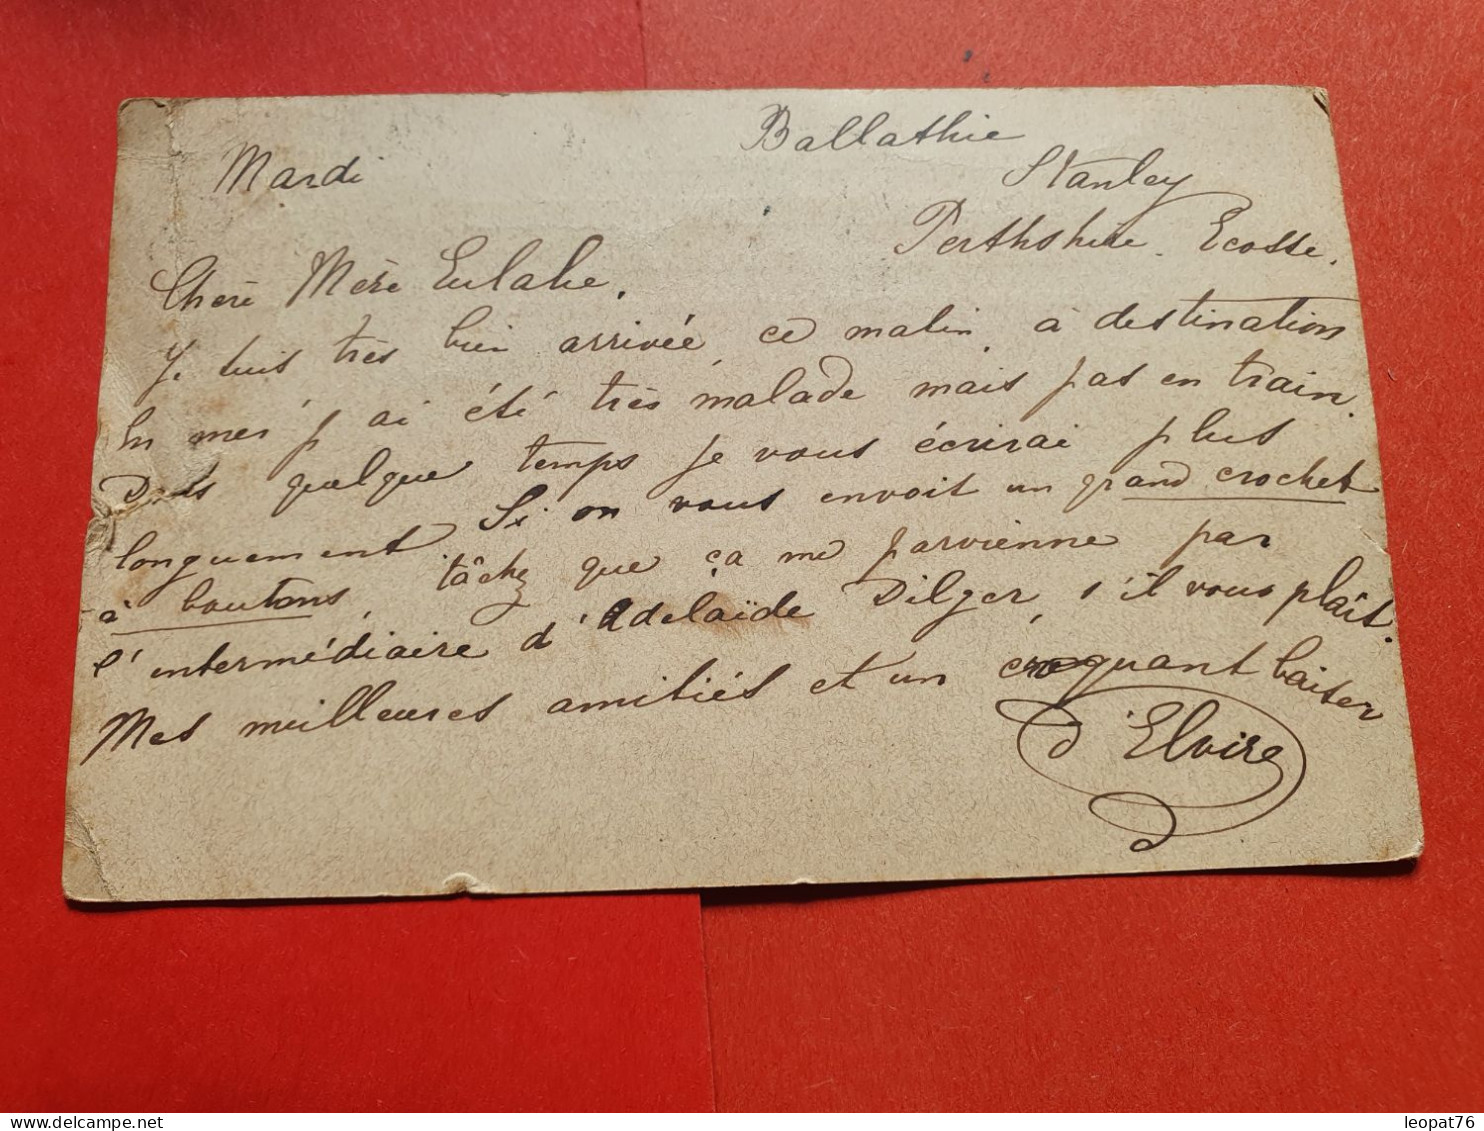 Ballathie
Mardi
Stanley
Perthshire. Ecosse.
Chère Mère Eulalie.
Je suis très bien arrivée ce matin à destination
En mer j'ai été très malade mais pas en train.
Dans quelque temps je vous écrirai plus
longuement Si on vous envoit un grand crochet
à boutons, tâchez que ça me parvienne par
l'intermédiaire d'Adelaïde Dilger, s'il vous plaît.
Mes meilleures amitiés et un croquant baiser
d'Elvire
leopat76